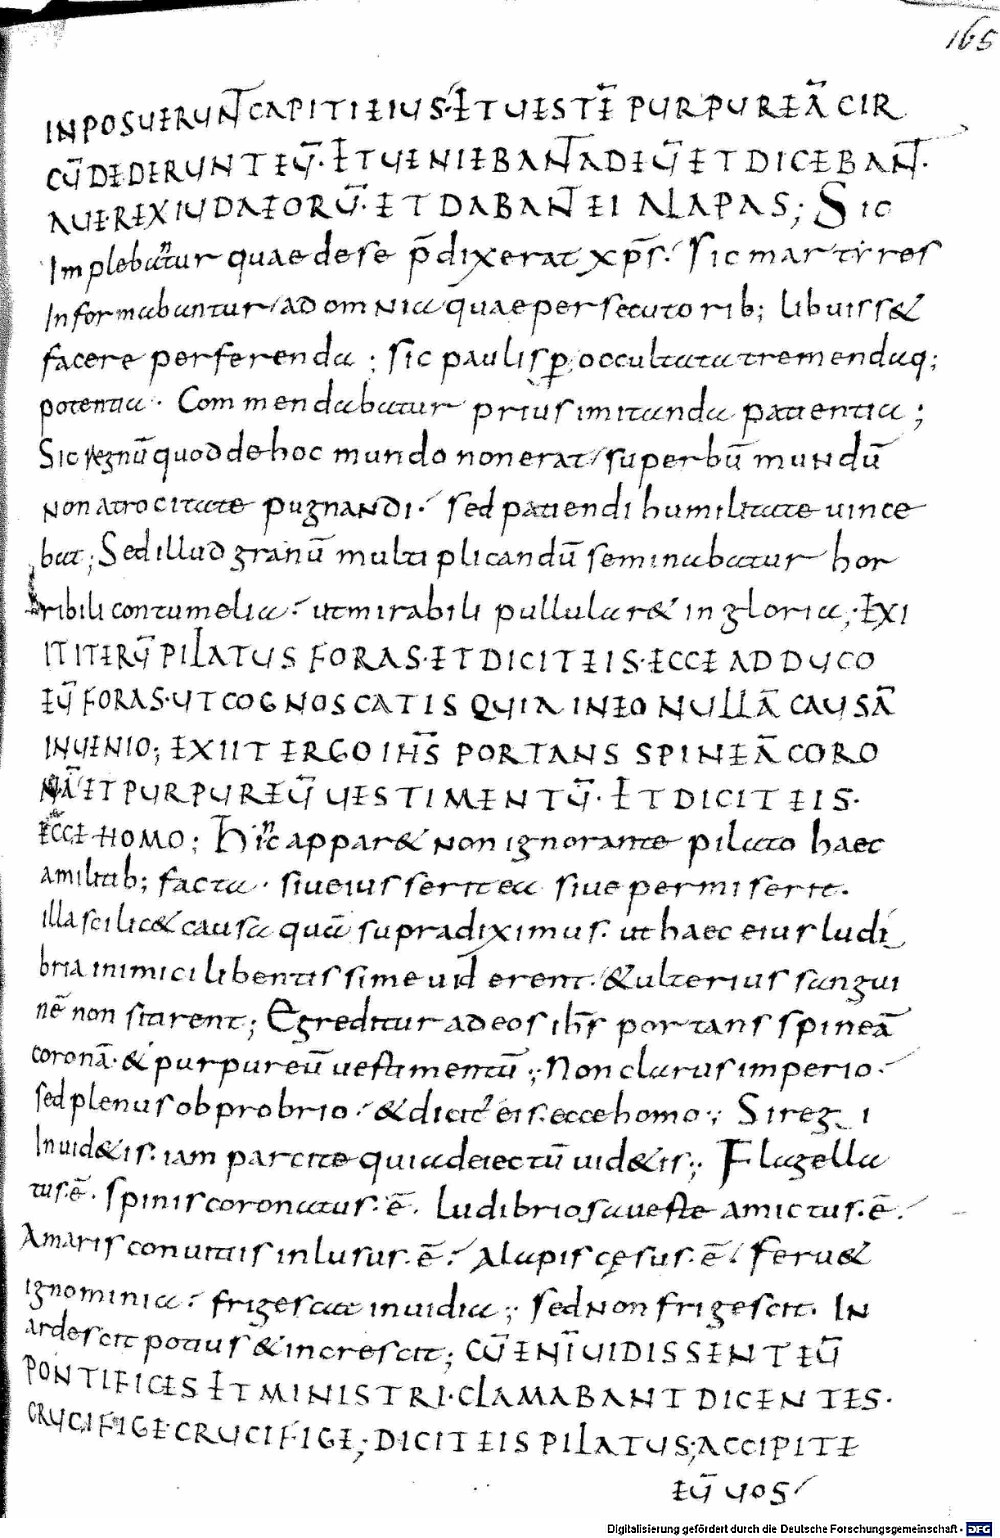 165
INPOSUERUNT CAPITI EIUS· ET UESTĒ PURPUREĀ CIR
CŪDEDERUNT EŪ· ET UENIEBANT AD EŪ ET DICEBANT·
AUE REX IUDAEORŪ· ET DABANT EI ALAPAS; Sic
Implebantur quae de se p̄dixerat xp̄s· Sic martyres
Informabantur ad omnia quae persecutorib; libuiss&
facere perferenda; sic paulisp occultata tremendaq;
potentia· Commendabatur prius imitanda patientia;
Sic regnū quod de hoc mundo non erat superbū mundū
non atrocitate pugnandi· sed patiendi humilitate uince
bat; Sed illud granū multiplicandū seminabatur hor
ribili contumelia· ut mirabili pullular& in gloria; EXI
IT ITERŪ PILATUS FORAS· ET DICIT EIS· ECCE ADDUCO
EŪ FORAS· UT COGNOSCATIS QUIA IN EO NULLĀ CAUSĀ
INUENIO; EXIIT ERGO IHS̄ PORTANS SPINEĀ CORO
NĀ ET PURPUREŪ UESTIMENTŪ· ET DICIT EIS·
ECCE HOMO; Hinc appar& non ignorante pilato haec
a militib; facta· siue iusserit ea siue permiserit·
illa scilic& causa quā supra diximus· ut haec eius ludi
bria inimici libentissime uiderent· & ulterius sangui
nē non sitirent; Egreditur ad eos ih̄s portans spineā
coronā· & purpureū uestimentū; Non clarus imperio·
sed plenus obprobrio· & dicit eis· ecce homo; Si regi
Inuid&is· iam parcite quia deiectū uid&is; Flagella
tus· ē· spinis coronatus· ē· Ludibriosa ueste amictus· ē·
Amaris conuitiis inlusus· ē· Alapis cęsus· ē· Feru&
ignominia· frigescat inuidia; sed non frigescit· IN
ardescit potius & increscit; CŪ ENĪ UIDISSENT EŪ
PONTIFICES ET MINISTRI· CLAMABANT DICENTES·
CRUCIFIGE CRUCIFIGE; DICIT EIS PILATUS; ACCIPITE
EŪ UOS
Digitalisierung gefördert durch die Deutsche Forschungsgemeinschaft - DFG